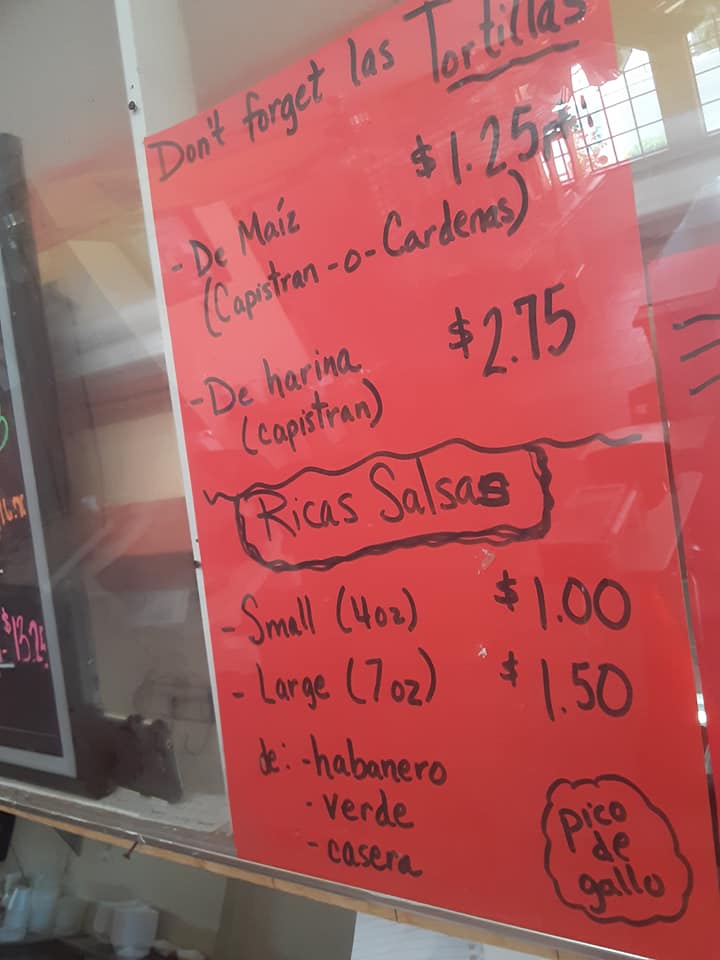 Don't forget las Tortillas
$1.25
- De Maíz
(Capistran -o- Cardenas)
- De harina $2.75
(capistran)
Ricas Salsas
- Small (4oz) $1.00
- Large (7oz) $1.50
de: - habanero
- verde
- casera
pico
de
gallo